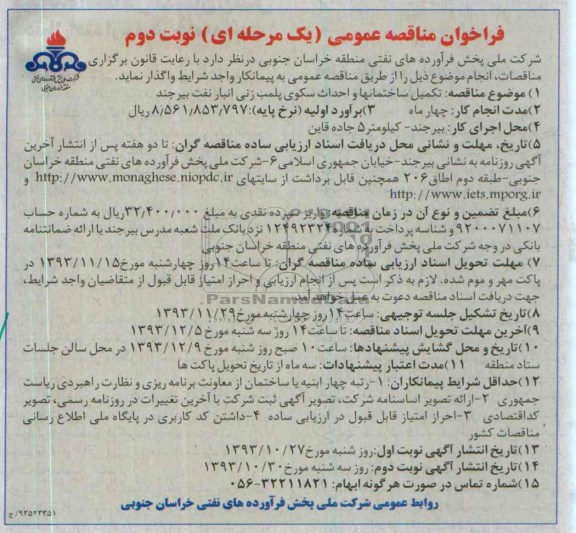 فراخوان مناقصه عمومی (یک مرحله ای) نوبت دوم
شرکت ملی پخش فرآورده های نفتی منطقه خراسان جنوبی درنظر دارد با رعایت قانون برگزاری
مناقصات، انجام موضوع ذیل را از طریق مناقصه عمومی به پیمانکار واجد شرایط واگذار نماید.
۱) موضوع مناقصه: تکمیل ساختمانها و احداث سکوی پلمب زنی انبار نفت بیرجند
۲)مدت انجام کار: چهار ماه ۳)برآورد اولیه (نرخ پایه): ۸/۵۶۱/۸۵۳/۷۹۷ ریال
۴)محل اجرای کار: بیرجند- کیلومتر۵ جاده قاین
۵)تاریخ، مهلت و نشانی محل دریافت اسناد ارزیابی ساده مناقصه گران: تا دو هفته پس از انتشار آخرین
آگهی روزنامه به نشانی بیرجند-خیابان جمهوری اسلامی۶-شرکت ملی پخش فرآورده های نفتی منطقه خراسان
جنوبی-طبقه دوم اطاق۲۰۶ همچنین قابل برداشت از سایتهای http://www.monaghese.niopdc.ir و
http://www.iets.mporg.ir
۶)مبلغ تضمین و نوع آن در زمان مناقصه: واریز سپرده نقدی به مبلغ ۳۲,۴۰۰,۰۰۰ریال به شماره حساب
۹۲۰۰۰۷۱۱۰۷ و شناسه پرداخت به شماره ۱۲۴۹۲۳۲۴ نزد بانک ملت شعبه مدرس بیرجند یا ارائه ضمانتنامه
بانکی در وجه شرکت ملی پخش فرآورده های نفتی منطقه خراسان جنوبی
۷) مهلت تحویل اسناد ارزیابی ساده مناقصه گران: تا ساعت۱۴روز چهارشنبه مورخ۱۳۹۳/۱۱/۱۵ در
پاکت مهر و موم شده. لازم به ذکر است پس از انجام ارزیابی و احراز امتیاز قابل قبول از متقاضیان واجد شرایط،
جهت دریافت اسناد مناقصه دعوت به عمل خواهد آمد.
۸)تاریخ تشکیل جلسه توجیهی: ساعت۱۲روز چهارشنبه مورخ۱۳۹۳/۱۱/۲۹
۹)آخرین مهلت تحویل اسناد مناقصه: تا ساعت۱۴ روز سه شنبه مورخ ۱۳۹۳/۱۲/۵
۱۰)تاریخ و محل گشایش پیشنهادها: ساعت۱۰ صبح روز شنبه مورخ ۱۳۹۳/۱۲/۹ در محل سالن جلسات
ستاد منطقه ۱۱)مدت اعتبار پیشنهادات: سه ماه از تاریخ تحویل پاکت ها
۱۲)حداقل شرایط پیمانکاران: ۱-رتبه چهار ابنیه یا ساختمان از معاونت برنامه ریزی و نظارت راهبردی ریاست
جمهوری ۲-ارائه تصویر اساسنامه شرکت، تصویر آگهی ثبت شرکت با آخرین تغییرات در روزنامه رسمی، تصویر
کداقتصادی ۳-احراز امتیاز قابل قبول در ارزیابی ساده ۴-داشتن کد کاربری در پایگاه ملی اطلاع رسانی
مناقصات کشور
۱۳)تاریخ انتشار آگهی نوبت اول:روز شنبه مورخ۱۳۹۳/۱۰/۲۷
۱۴)تاریخ انتشار آگهی نوبت دوم: روز سه شنبه مورخ ۱۳۹۳/۱۰/۳۰
۱۵)شماره تماس در صورت هرگونه ابهام: ۳۲۲۱۱۸۲۱-۰۵۶
روابط عمومی شرکت ملی پخش فرآورده های نفتی خراسان جنوبی
۹۳۵۲۳۳۵۱/ج